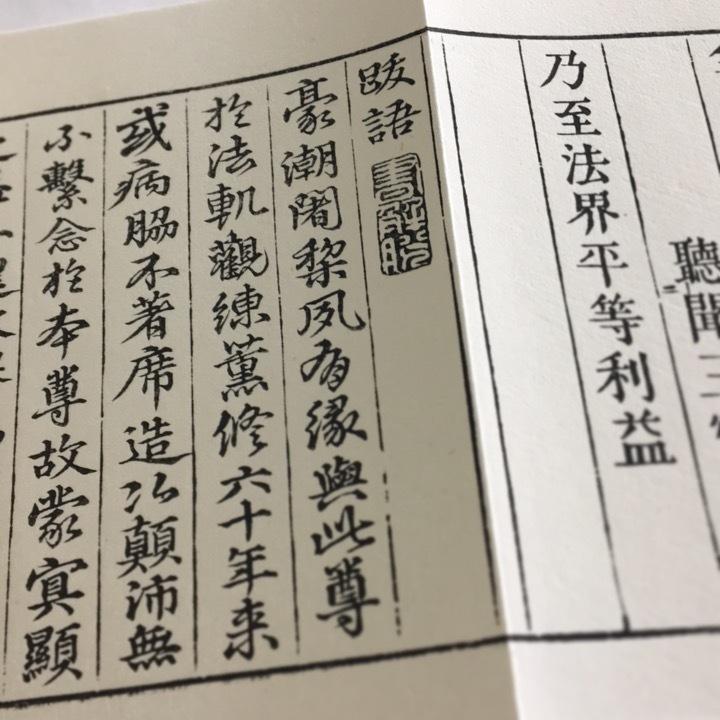 聽聞三
乃至法界平等利益
跋語
豪潮闍黎夙有緣與此尊
扵法軌觀練薰修六十年来
或病脇不著席造次顛沛無
不繫念扵本尊故蒙冥顯